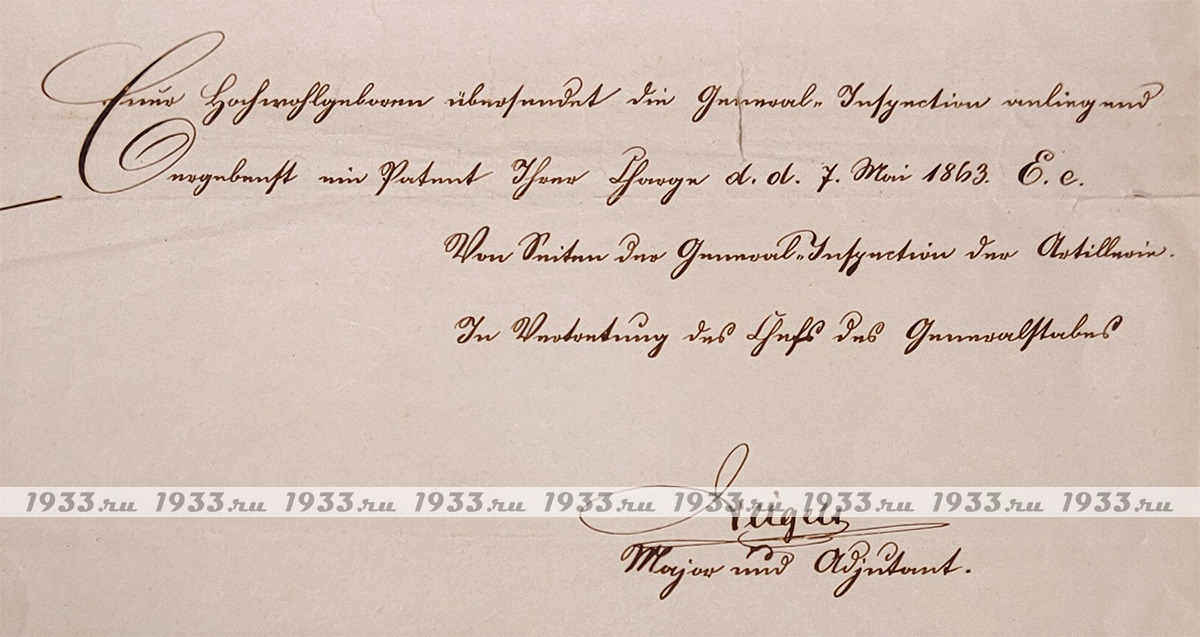 Euer Hochwohlgeboren übersendet die General-Inspection anliegend
ergebenst ein Patent Ihrer Charge d. d. 7. Mai 1863. E. c.
Von Seiten der General-Inspection der Artillerie.
In Vertretung des Chefs des Generalstabes
1933.ru 1933.ru 1933.ru 1933.ru 1933.ru 1933.ru 1933.ru 1933.ru 1933.ru
Major und Adjutant.